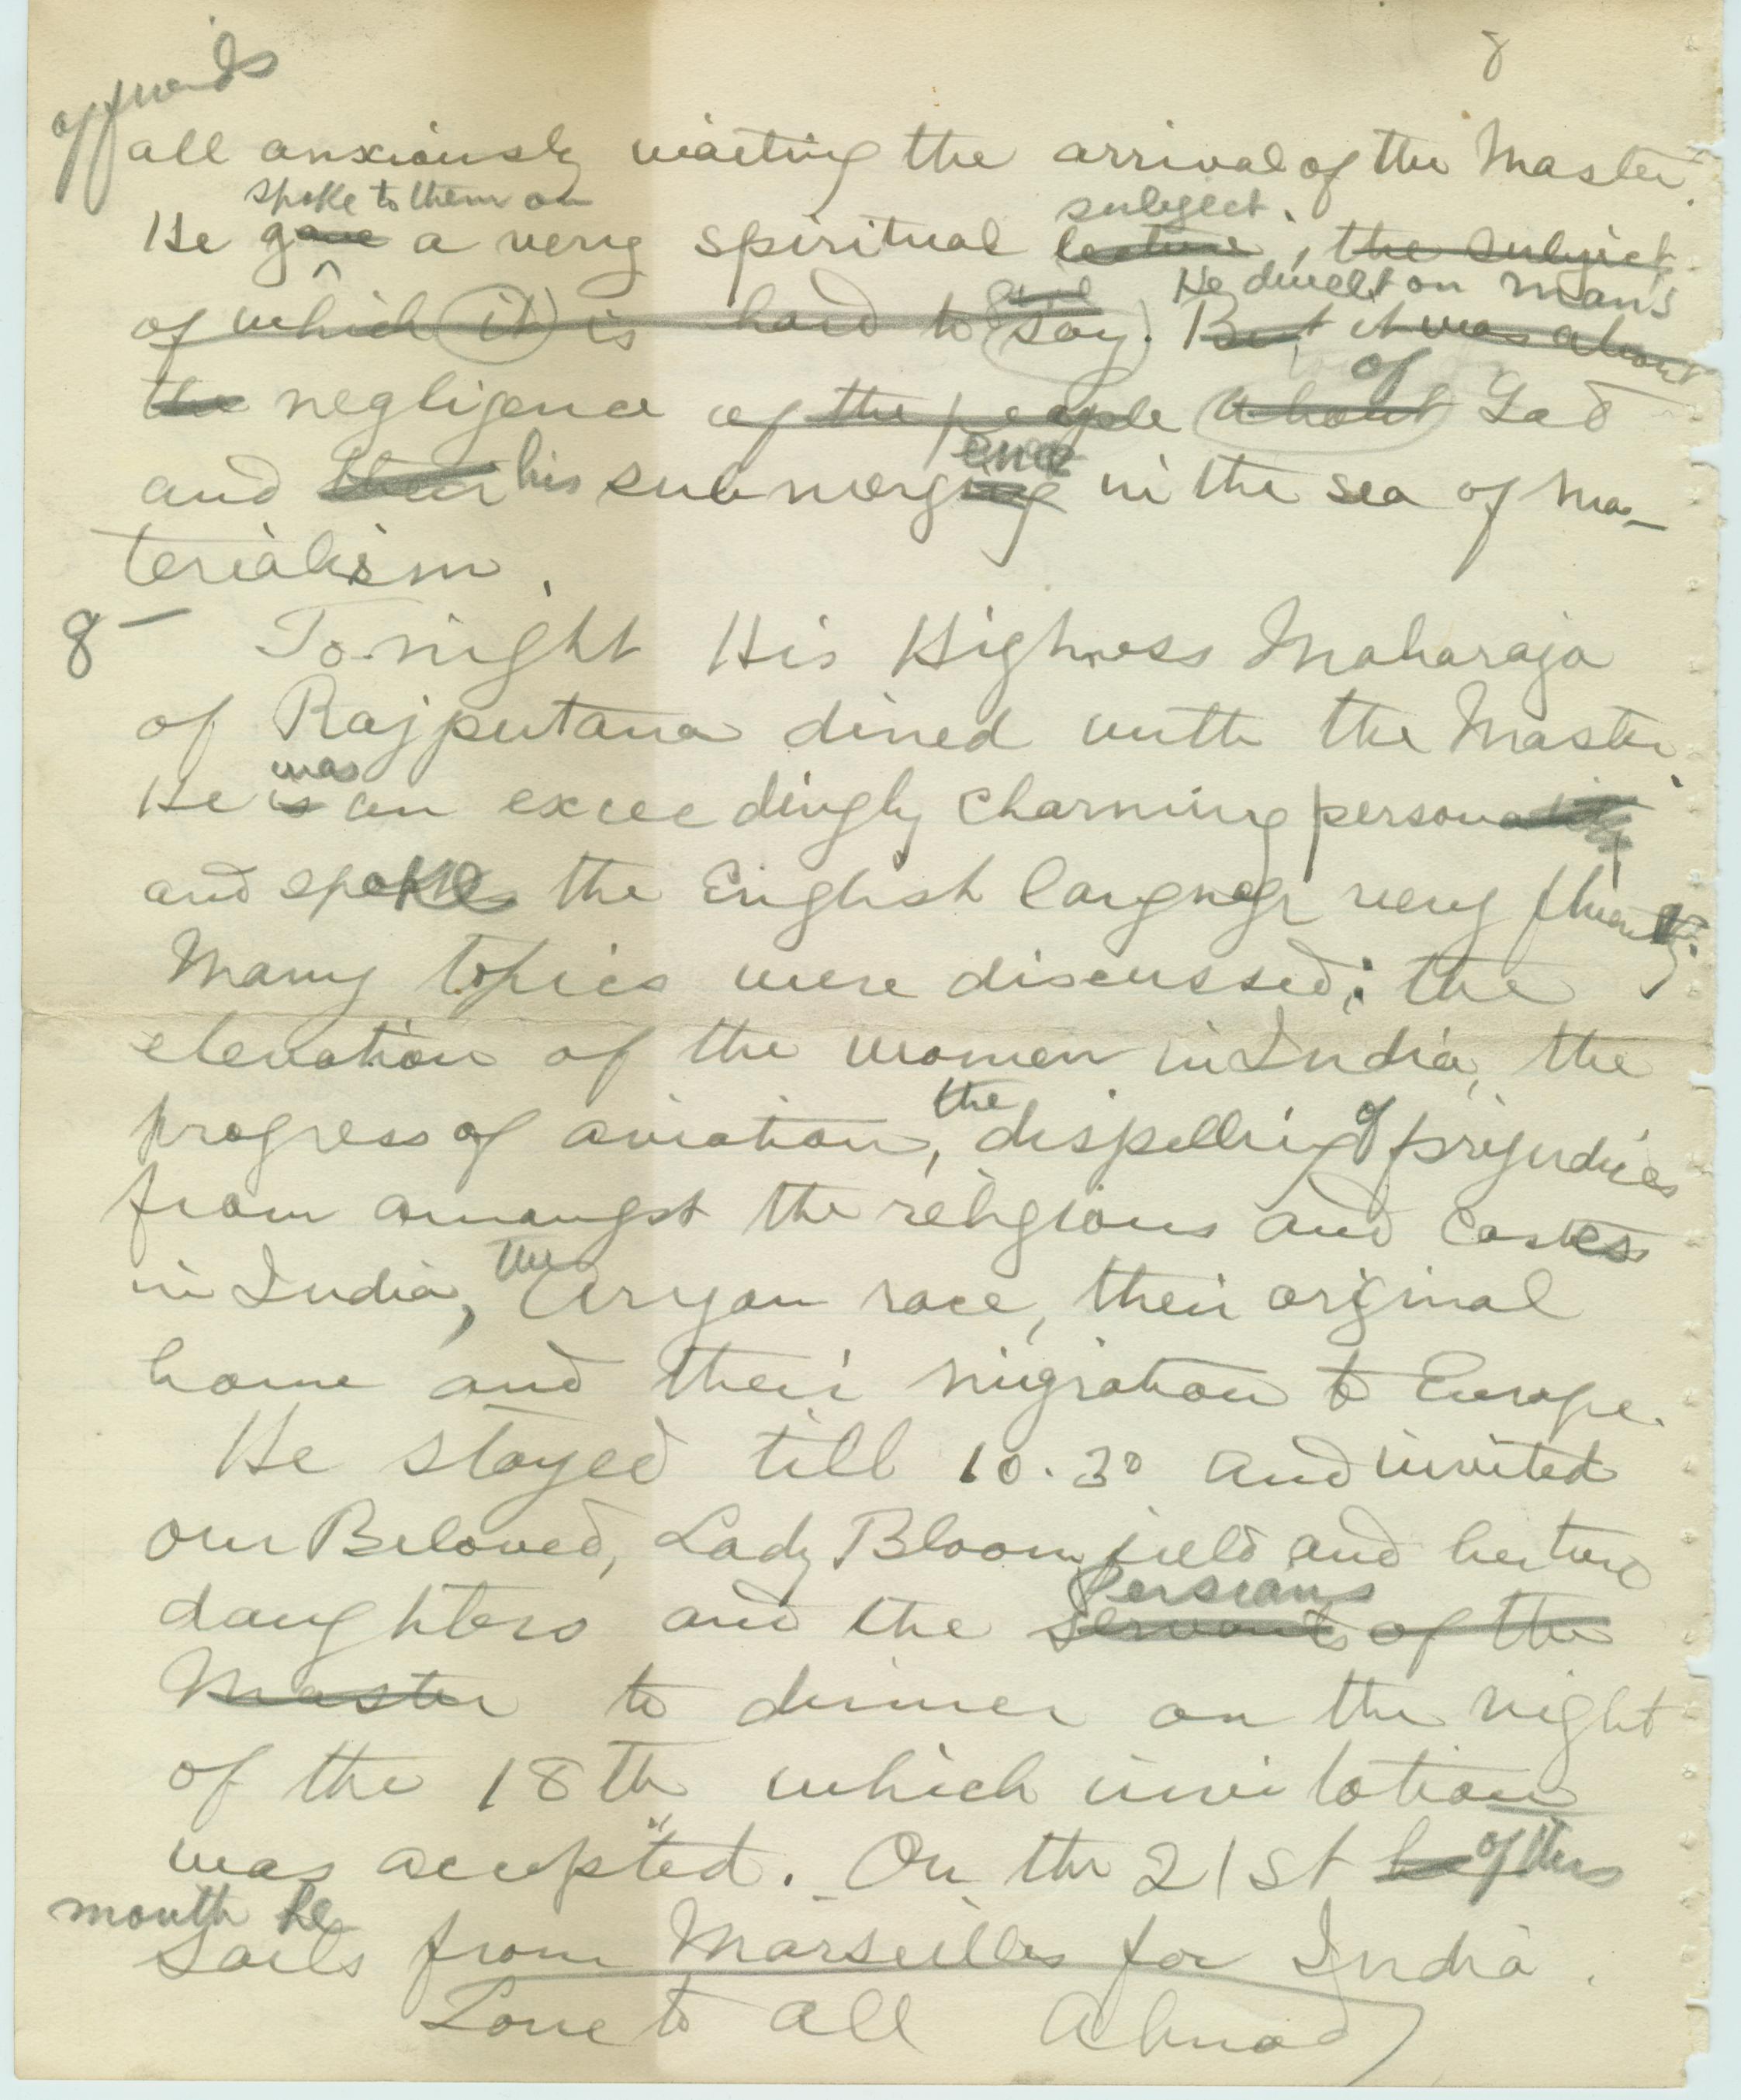 8
of friends
all anxiously waiting the arrival of the Master.
spoke to them on subject.
He gave a very spiritual lecture, the subject
He dwelt on man's
of which it is hard to say. But it was about
of
the negligence of the people about God
ence
and their his submerging in the sea of ma-
terialism.
8 - To-night His Highness Maharaja
of Rajputana dined with the Master.
was
He is an exceedingly charming personality
and spoke the English language very fluently.
Many topics were discussed; the
elevation of the women in India, the
the of
progress of aviation, dispelling prejudices
from amongst the religions and castes
the
in India, Aryan race, their original
home and their migration to Europe.
He stayed till 10.30 and invited
our Beloved, Lady Bloomfield and her two
Persians
daughters and the servants of the
Master to dinner on the night
of the 18th which invitation
was accepted. On the 21st he of this
month he
sails from Marseilles for India.
Love to all Ahmad